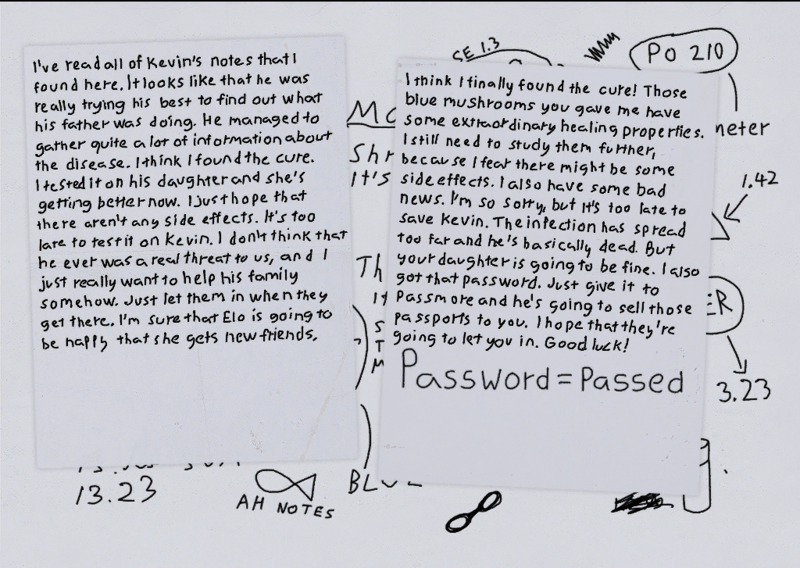 I've read all of Kevin's notes that I
found here. It looks like that he was
really trying his best to find out what
his father was doing. He managed to
gather quite a lot of information about
the disease. I think I found the cure.
I tested it on his daughter and she's
getting better now. I just hope that
there aren't any side effects. It's too
late to test it on Kevin. I don't think that
he ever was a real threat to us, and I
just really want to help his family
somehow. Just let them in when they
get there. I'm sure that Elo is going to
be happy that she gets new friends.
I think I finally found the cure! Those
blue mushrooms you gave me have
some extraordinary healing properties.
I still need to study them further,
because I fear there might be some
side effects. I also have some bad
news. I'm so sorry, but it's too late to
save Kevin. The infection has spread
too far and he's basically dead. But
your daughter is going to be fine. I also
got that password. Just give it to
Passmore and he's going to sell those
passports to you. I hope that they're
going to let you in. Good luck!
Password = Passed
SE 1.3
PO 210
meter
1.42
Shr
It's
Th
ER
3.23
13.23
AH NOTES